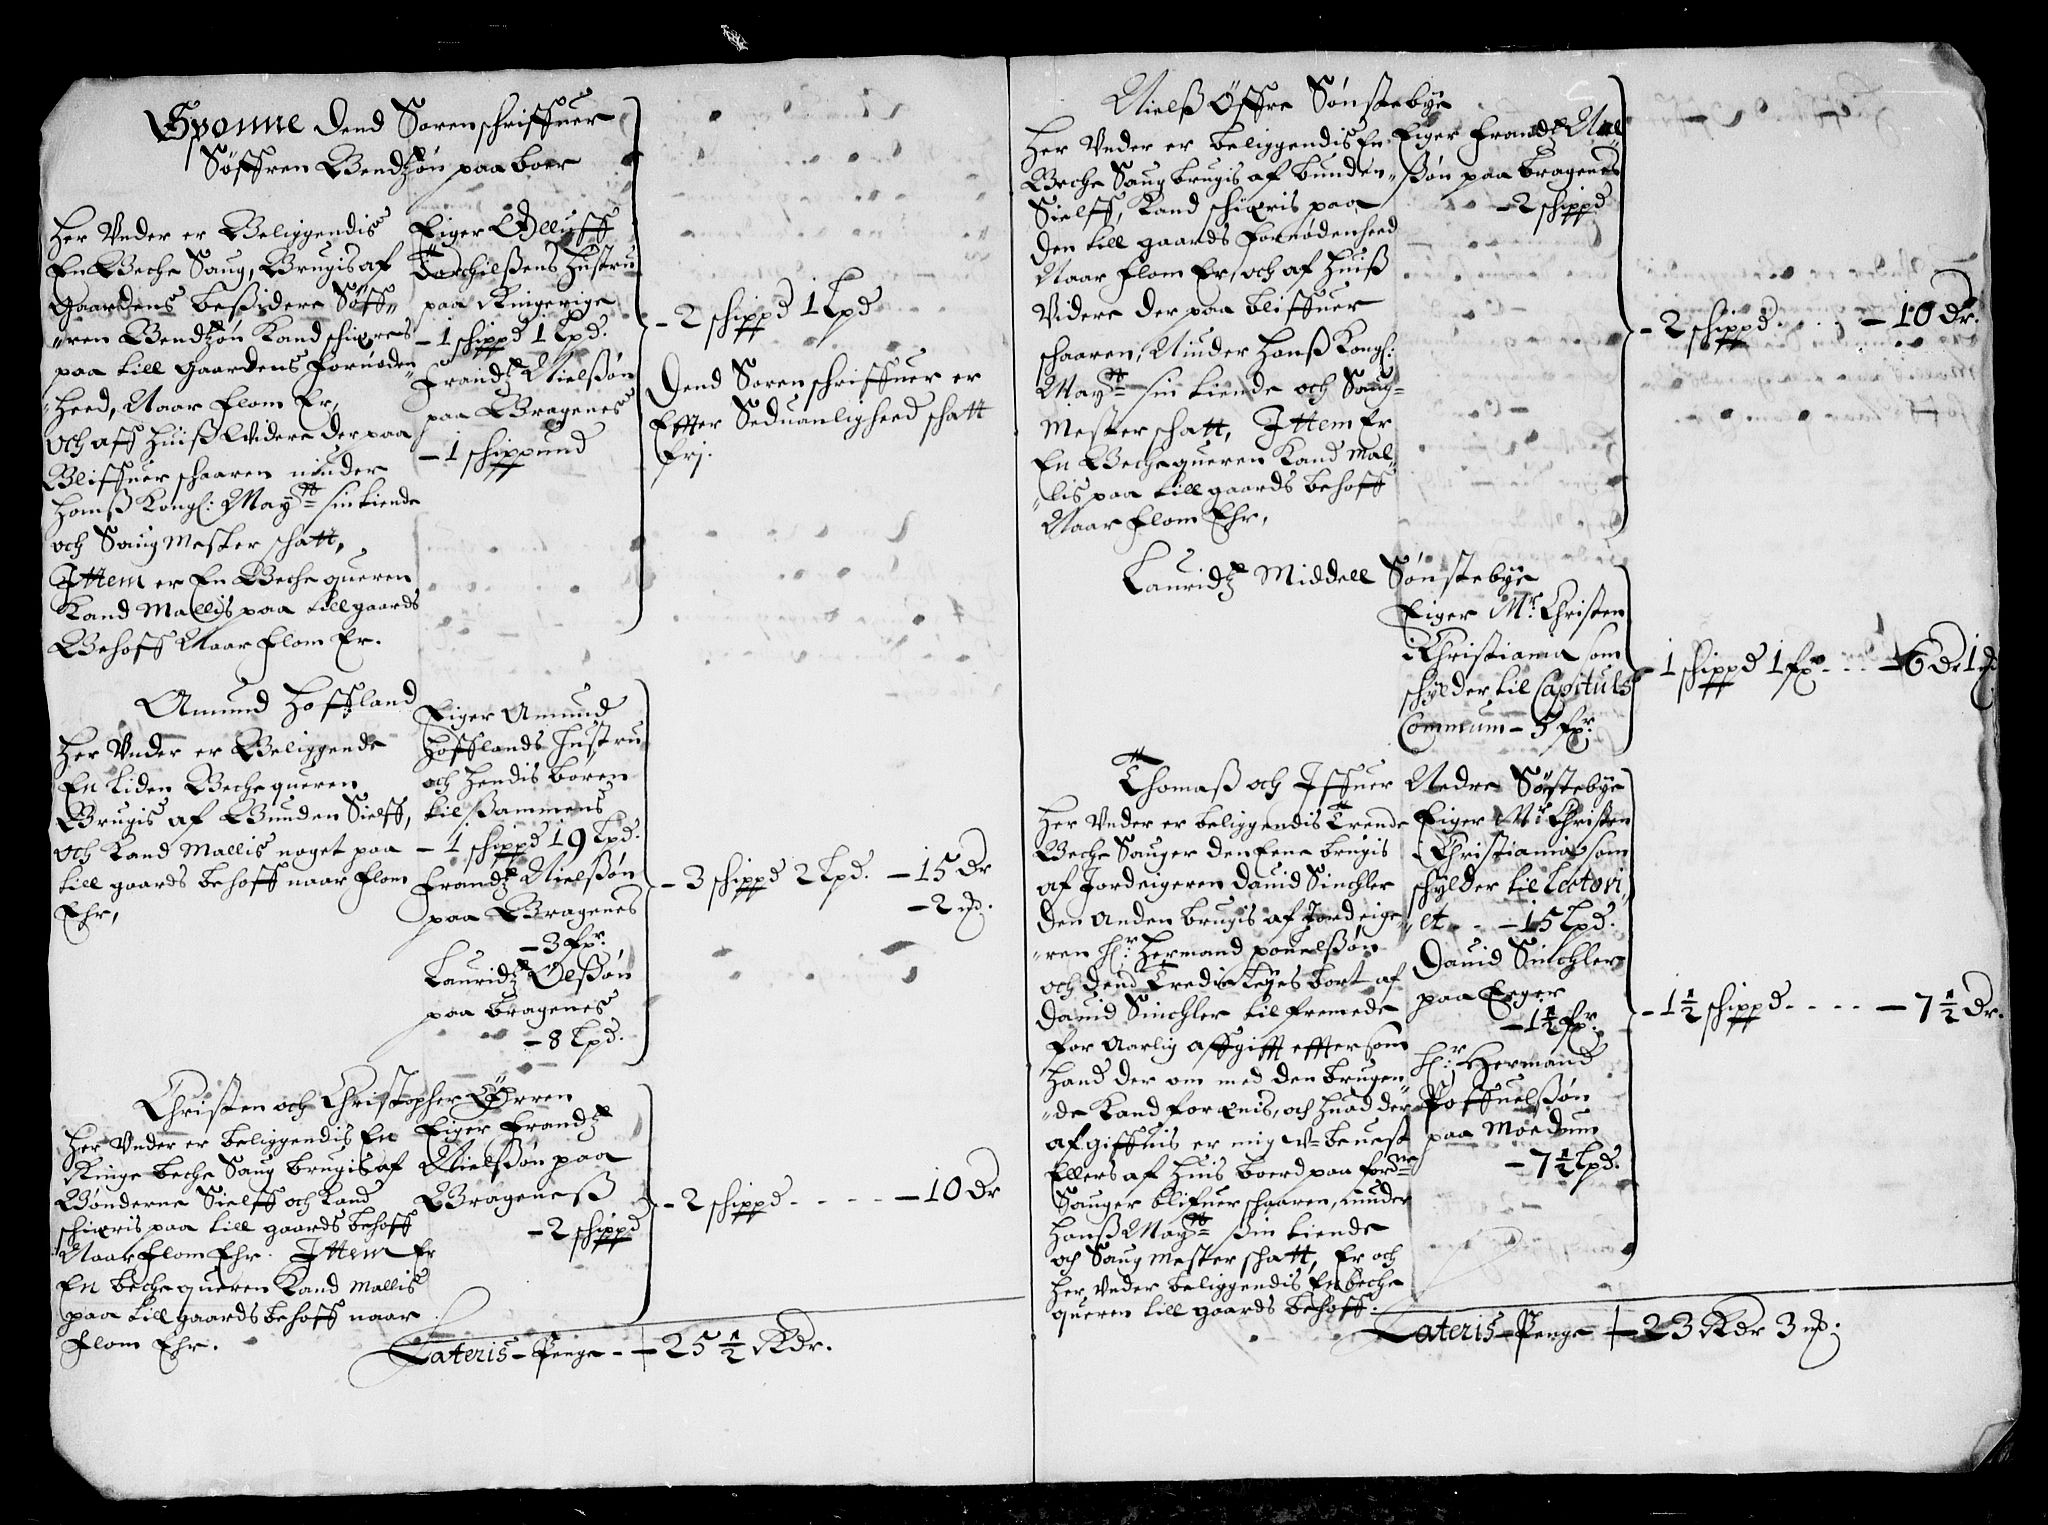 Gponne Dend Sorenschriffuer
Søffren Bendtzøn paa boer
Her Vnder er Beliggendis
En Beche Saug, Brugis af
Gaardens beßidere Søff-
"ren Bendtzøn Kand schieres
paa till Gaardens fornøden
"heed, Naar flom Er,
och aff huiß Widere der paa
Bliffuer schaaren minder
Hanß Kongl: Maytt sin tiende
och Saug Mester schatt,
Ittem er En Beche queren
Kand Mallis paa till gaards
Behoff Naar flom Er.
Eiger Olluff
Torchilßens Hustru
paa Ringerige
- 1 schippd 1 Lpd.
Frandtz Nielßøn
paa Bragenes
- 1 schippund
- 2 schippd 1 Lpd
Dend Soren schriffuer er
Effter Seduanligheed schatt
frj.
Amund Hoffland
Her Vnder er Beliggende
En liden Beche queren
Brugis af Bunden Sielff,
och Kand Mallis noget paa
till gaards behoff naar flom
Ehr,
Eiger Amund
Hofflands Hustru
och hendis børen
tilßammens
- 1 schippd 19 Lpd.
Frandtz Nielßøn
paa Bragenes
- 3 fpr.
Lauridtz Olßøn
paa bragenes
- 8 Lpd.
- 3 schippd 2 Lpd. - 15 Dr
- 2 ß.
Christen och Christopher Ørren
Her Vnder er beliggendis En
Ringe beche Saug brugis af
Bønderne Sielff och Kand
schieris paa till gaards behoff
Naar flom Ehr. Ittem Er
En beche queren Kand Mallis
paa till gaards behoff naar
flom Ehr.
Eiger Frandtz
Nielßøn paa
Brageneß
- 2 schippd
- 2 schippd - - - - - 10 Dr
Lateris - Penge - - 25 1/2 Rdr.
Nielß Øffre Sønstebye
Her Vnder er beliggendis En
Beche Saug brugis af bunden
Sielff, Kand schieris paa
den till gaards fornødenheed
Naar flom Er, och af huiß
Videre der paa bliffuer
schaaren, Minder Hanß Kongl:
Maytt sin tiende och Saug-
Mester schatt, Ittem Er
En Beche queren Kand Mal-
"lis paa till gaards behoff
Naar flom Ehr,
Eiger Frandtz Niel
"ßøn paa bragenes
- 2 schippd
- 2 schippd. - - - - 10 Dr.
Lauridtz Middell Sønstebye
Eiger Mr. Christen
i Christiania som
schylder til Capituls
Commun - 5 fpr.
- 1 schippd 1 fpr - - - 6 Dr 1 ß
Thomaß och Iffuer Nedre Søstebye
Her Vnder er beliggendis Trende
Beche Sauger den Eene brugis
af Jordeigeren Dauid Sinchler
den Anden brugis af Jordeige-
"ren Hr. Hermand pouelßøn
och dend Tredie Leyes bort af
Dauid Sinchler til fremede
for Aarlig affgifft effter som
hand der om med den brugen-
"de Kand forænis, och huad der
af giffuis er mig V-beuest
Ellers af huis boerd paa fordne
Sauger blifuer schaaren, minder
Hanß Maytt sin tiende
och Saug mester schatt, Er och
Her Vnder beliggendis En beche
queren till gaards behoff.
Eiger Mr Christen
i Christiania som
schylder til Lectori,
"et - - - 15 Lpd.
Dauid Sinchler
paa Eeger
- 1 1/2 fpr.
Hr. Hermand
Poffuelßøn
paa Moedum
- 7 1/2 Lpd.
- 1 1/2 schippd - - - - - 7 1/2 Dr.
Lateris - Penge - 23 Rdr 3 ß.